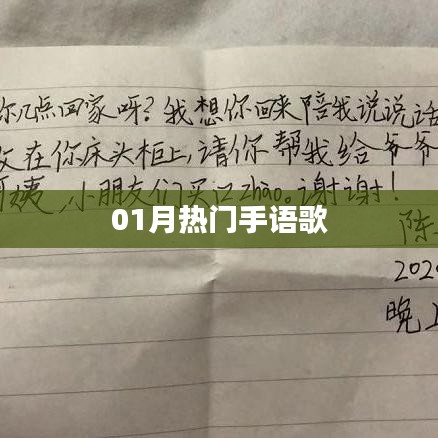 你几点回家呀?我想你回来陪我说说话
在你床头柜上,请你帮我给爷爷
姨,小朋友们买口zhào。谢谢!
01月热门手语歌
陈
2020
晚上